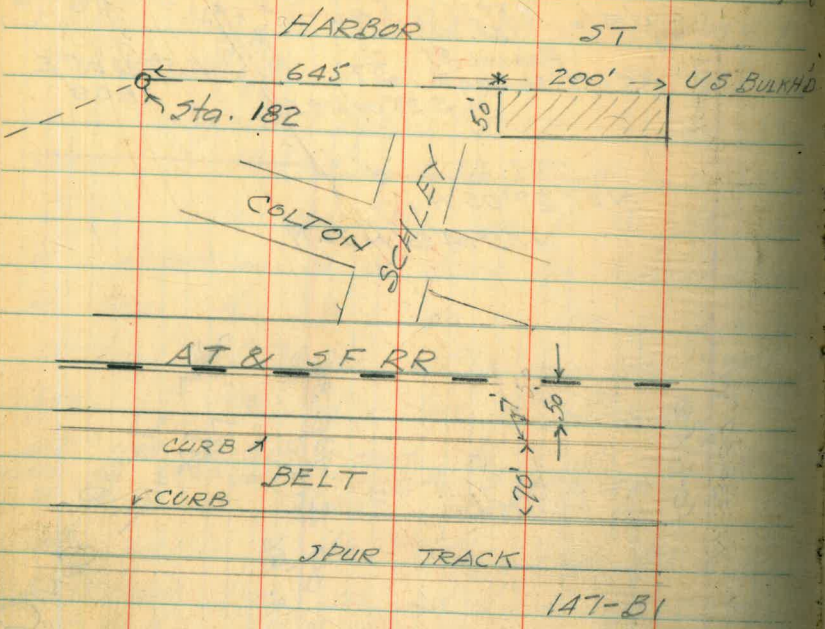 HARBOR ST
645 * 200' US BULKH'D
Sta. 182
50'
COLTON
SCHLEY
AT & SF RR
50'
CURB
70'
BELT
CURB
SPUR TRACK
147-B1